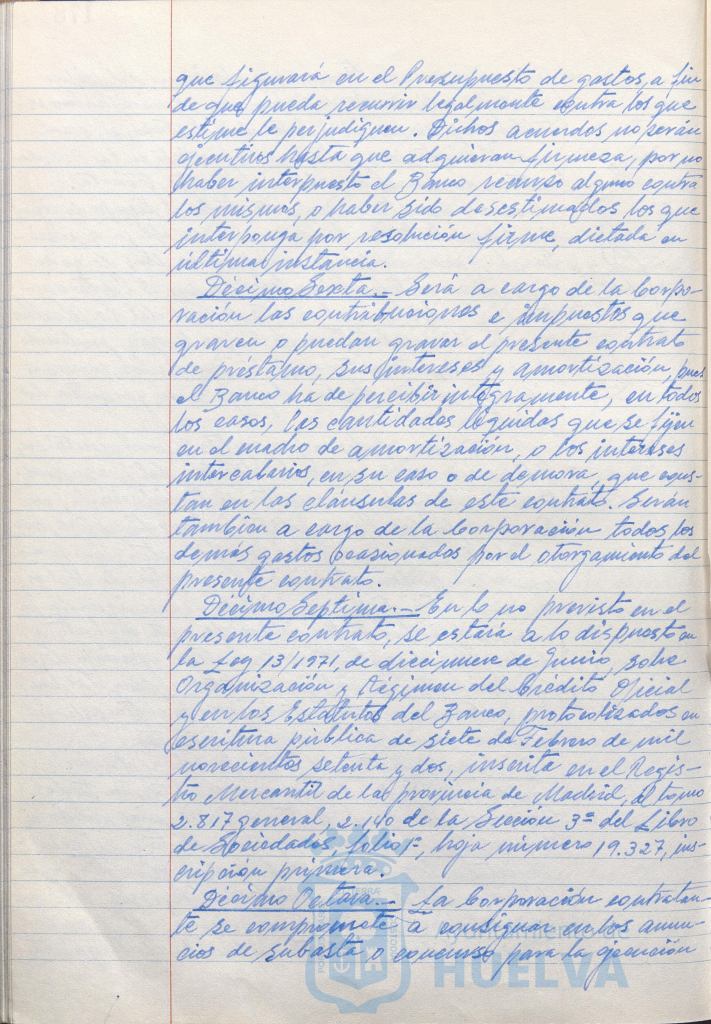 que figurará en el Presupuesto de gastos, a fin
de que pueda recurrir legalmente contra los que
estime le perjudiquen. Dichos acuerdos no serán
ejecutivos hasta que adquieran firmeza, por no
haber interpuesto el Banco recurso alguno contra
los mismos, o haber sido desestimados los que
interponga por resolución firme, dictada en
última instancia.
Décimo Sexta.- Será a cargo de la Corpo-
ración las contribuciones e impuestos que
graven o puedan gravar el presente contrato
de préstamo, sus intereses y amortización, pues
el Banco ha de percibir íntegramente, en todos
los casos, las cantidades líquidas que se fijen
en el cuadro de amortización, o los intereses
intercalarios, en su caso o de demora, que cons-
tan en las cláusulas de este contrato. Serán
también a cargo de la Corporación todos los
demás gastos ocasionados por el otorgamiento del
presente contrato.
Décimo Septima.- En lo no previsto en el
presente contrato, se estará a lo dispuesto en
la Ley 13/1971, de diecinueve de Junio, sobre
Organización y Régimen del Crédito Oficial
y en los Estatutos del Banco, protocolizados en
escritura pública de siete de Febrero de mil
novecientos setenta y dos, inscrita en el Regis-
tro Mercantil de la provincia de Madrid, al tomo
2.817 general, 2.140 de la Sección 3ª del Libro
de Sociedades, folio 1º, hoja número 19.327, ins-
cripción primera.
Décimo Octava.- La Corporación contratan-
te se compromete a consignar en los anun-
cios de subasta o concurso para la ejecución
HUELVA